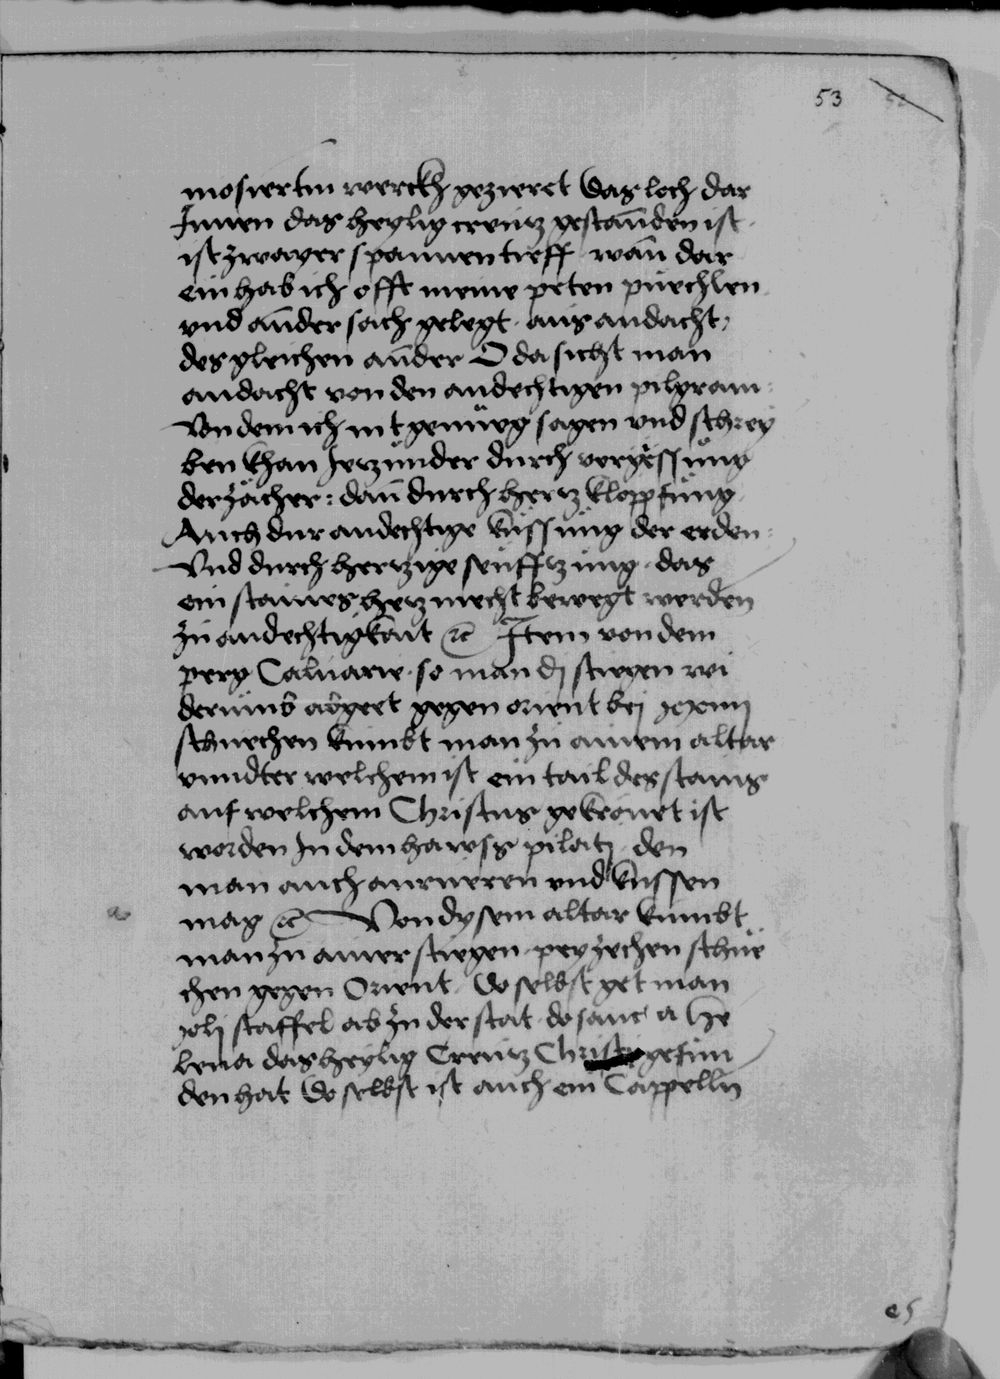 53
mosiertin werckh gezieret Das loch dar
Innen das heylig creutz gestanden ist
ist zwayer spannen tieff wan dar
ein hab ich offt meine peten puechlen
vnd ander sach gelegt aus andacht
desgleichen ander O da sicht man
andacht von den andechtigen pilgram
Von dem ich nit genueg sagen vnd schrey
ben khan Jetzunder durch vergessung
der zächer: dan durch hertz kloppfung
Auch dur andechtige küssung der erden
Vnd durch hertzige seufftzung das
ein staines hertz mecht bewegt werden
zu andechtigkait Item von dem
perg Caluarie so man stiegen wi
derumb abgeet gegen orient bei
schuechen kumbt man zu ainem altar
vnndter welchem ist ein tail des stains
auf welchem Christus gekrönet ist
worden In dem hawss pilati den
man auch anrueren vnd kussen
mag Von dysem altar kumbt
man zu ainer stiegen pey zechen schue
chen gegen Orient Do selbst get man
staffel ab zu der stat do sant a He
lena das heylig Creutz Christi gefun
den hat Do selbst ist auch ein Cappelln
e5